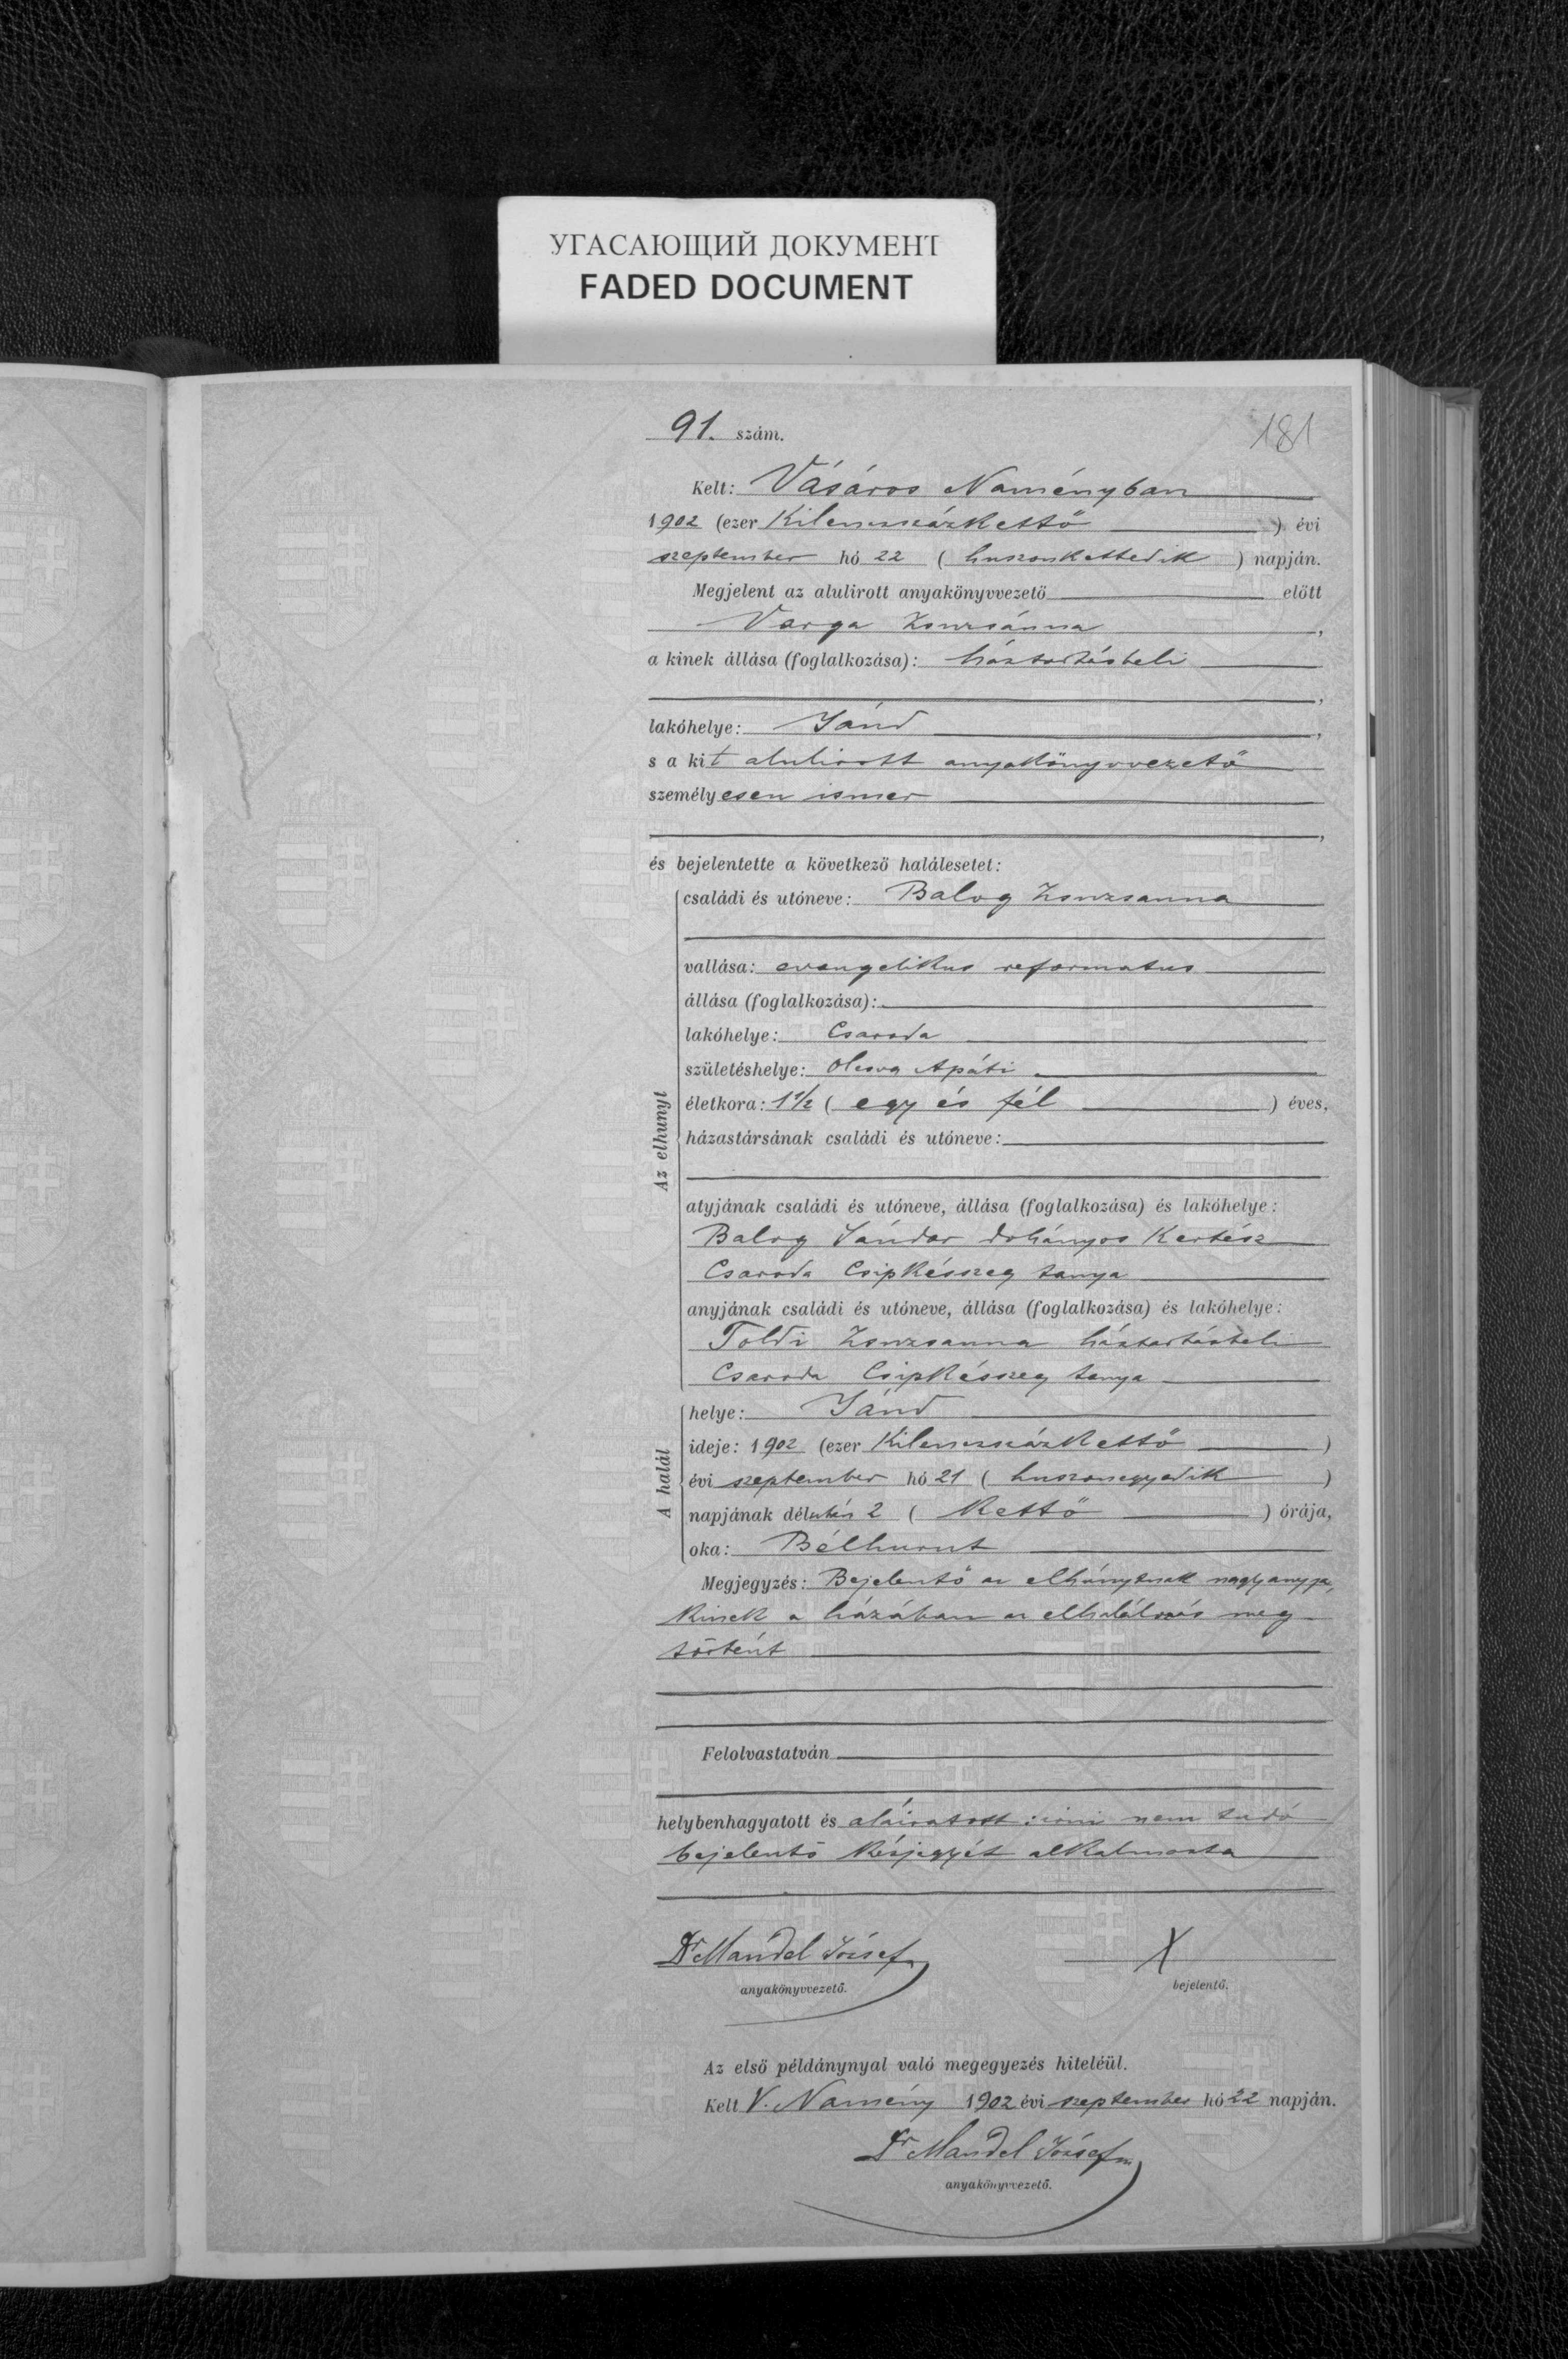 УГАСАЮЩИЙ ДОКУМЕНТ
FADED DOCUMENT
91. szám.
181
Kelt: Vásáros Naményban
1902 (ezer Kilencszázkettő) évi
szeptember hó 22 (huszonkettedik) napján.
Megjelent az alulirott anyakönyvvezető előtt
Varga Zsuzsánna,
a kinek állása (foglalkozása): háztartásbeli
,
lakóhelye: Jánd,
s a kit alulirott anyakönyvvezető
személyesen ismer
,
és bejelentette a következő halálesetet:
Az elhunyt
családi és utóneve: Balog Zsuzsanna
vallása: evangelikus reformatus
állása (foglalkozása):
lakóhelye: Csaroda
születéshelye: Olcsva Apáti
életkora: 1 1/2 (egy és fél) éves,
házastársának családi és utóneve:
atyjának családi és utóneve, állása (foglalkozása) és lakóhelye:
Balog Sándor dohányos Kertész
Csaroda Csipkésszeg tanya
anyjának családi és utóneve, állása (foglalkozása) és lakóhelye:
Toldi Zsuzsanna háztartásbeli
Csaroda Csipkésszeg tanya
A halál
helye: Jánd
ideje: 1902 (ezer Kilencszázkettő)
évi szeptember hó 21 (huszonegyedik)
napjának délután 2 (Kettő) órája,
oka: Bélhurut
Megjegyzés: Bejelentő az elhúnytnak nagyanyja,
kinek a házában az elhalálozás meg
történt
Felolvastatván
helybenhagyatott és aláiratott: irni nem tudó
bejelentő kézjegyét alkalmazta
Dr Mandel József
anyakönyvvezető.
X
bejelentő.
Az első példánynyal való megegyezés hiteléül.
Kelt V. Namény 1902 évi szeptember hó 22 napján.
Dr Mandel József
anyakönyvvezető.